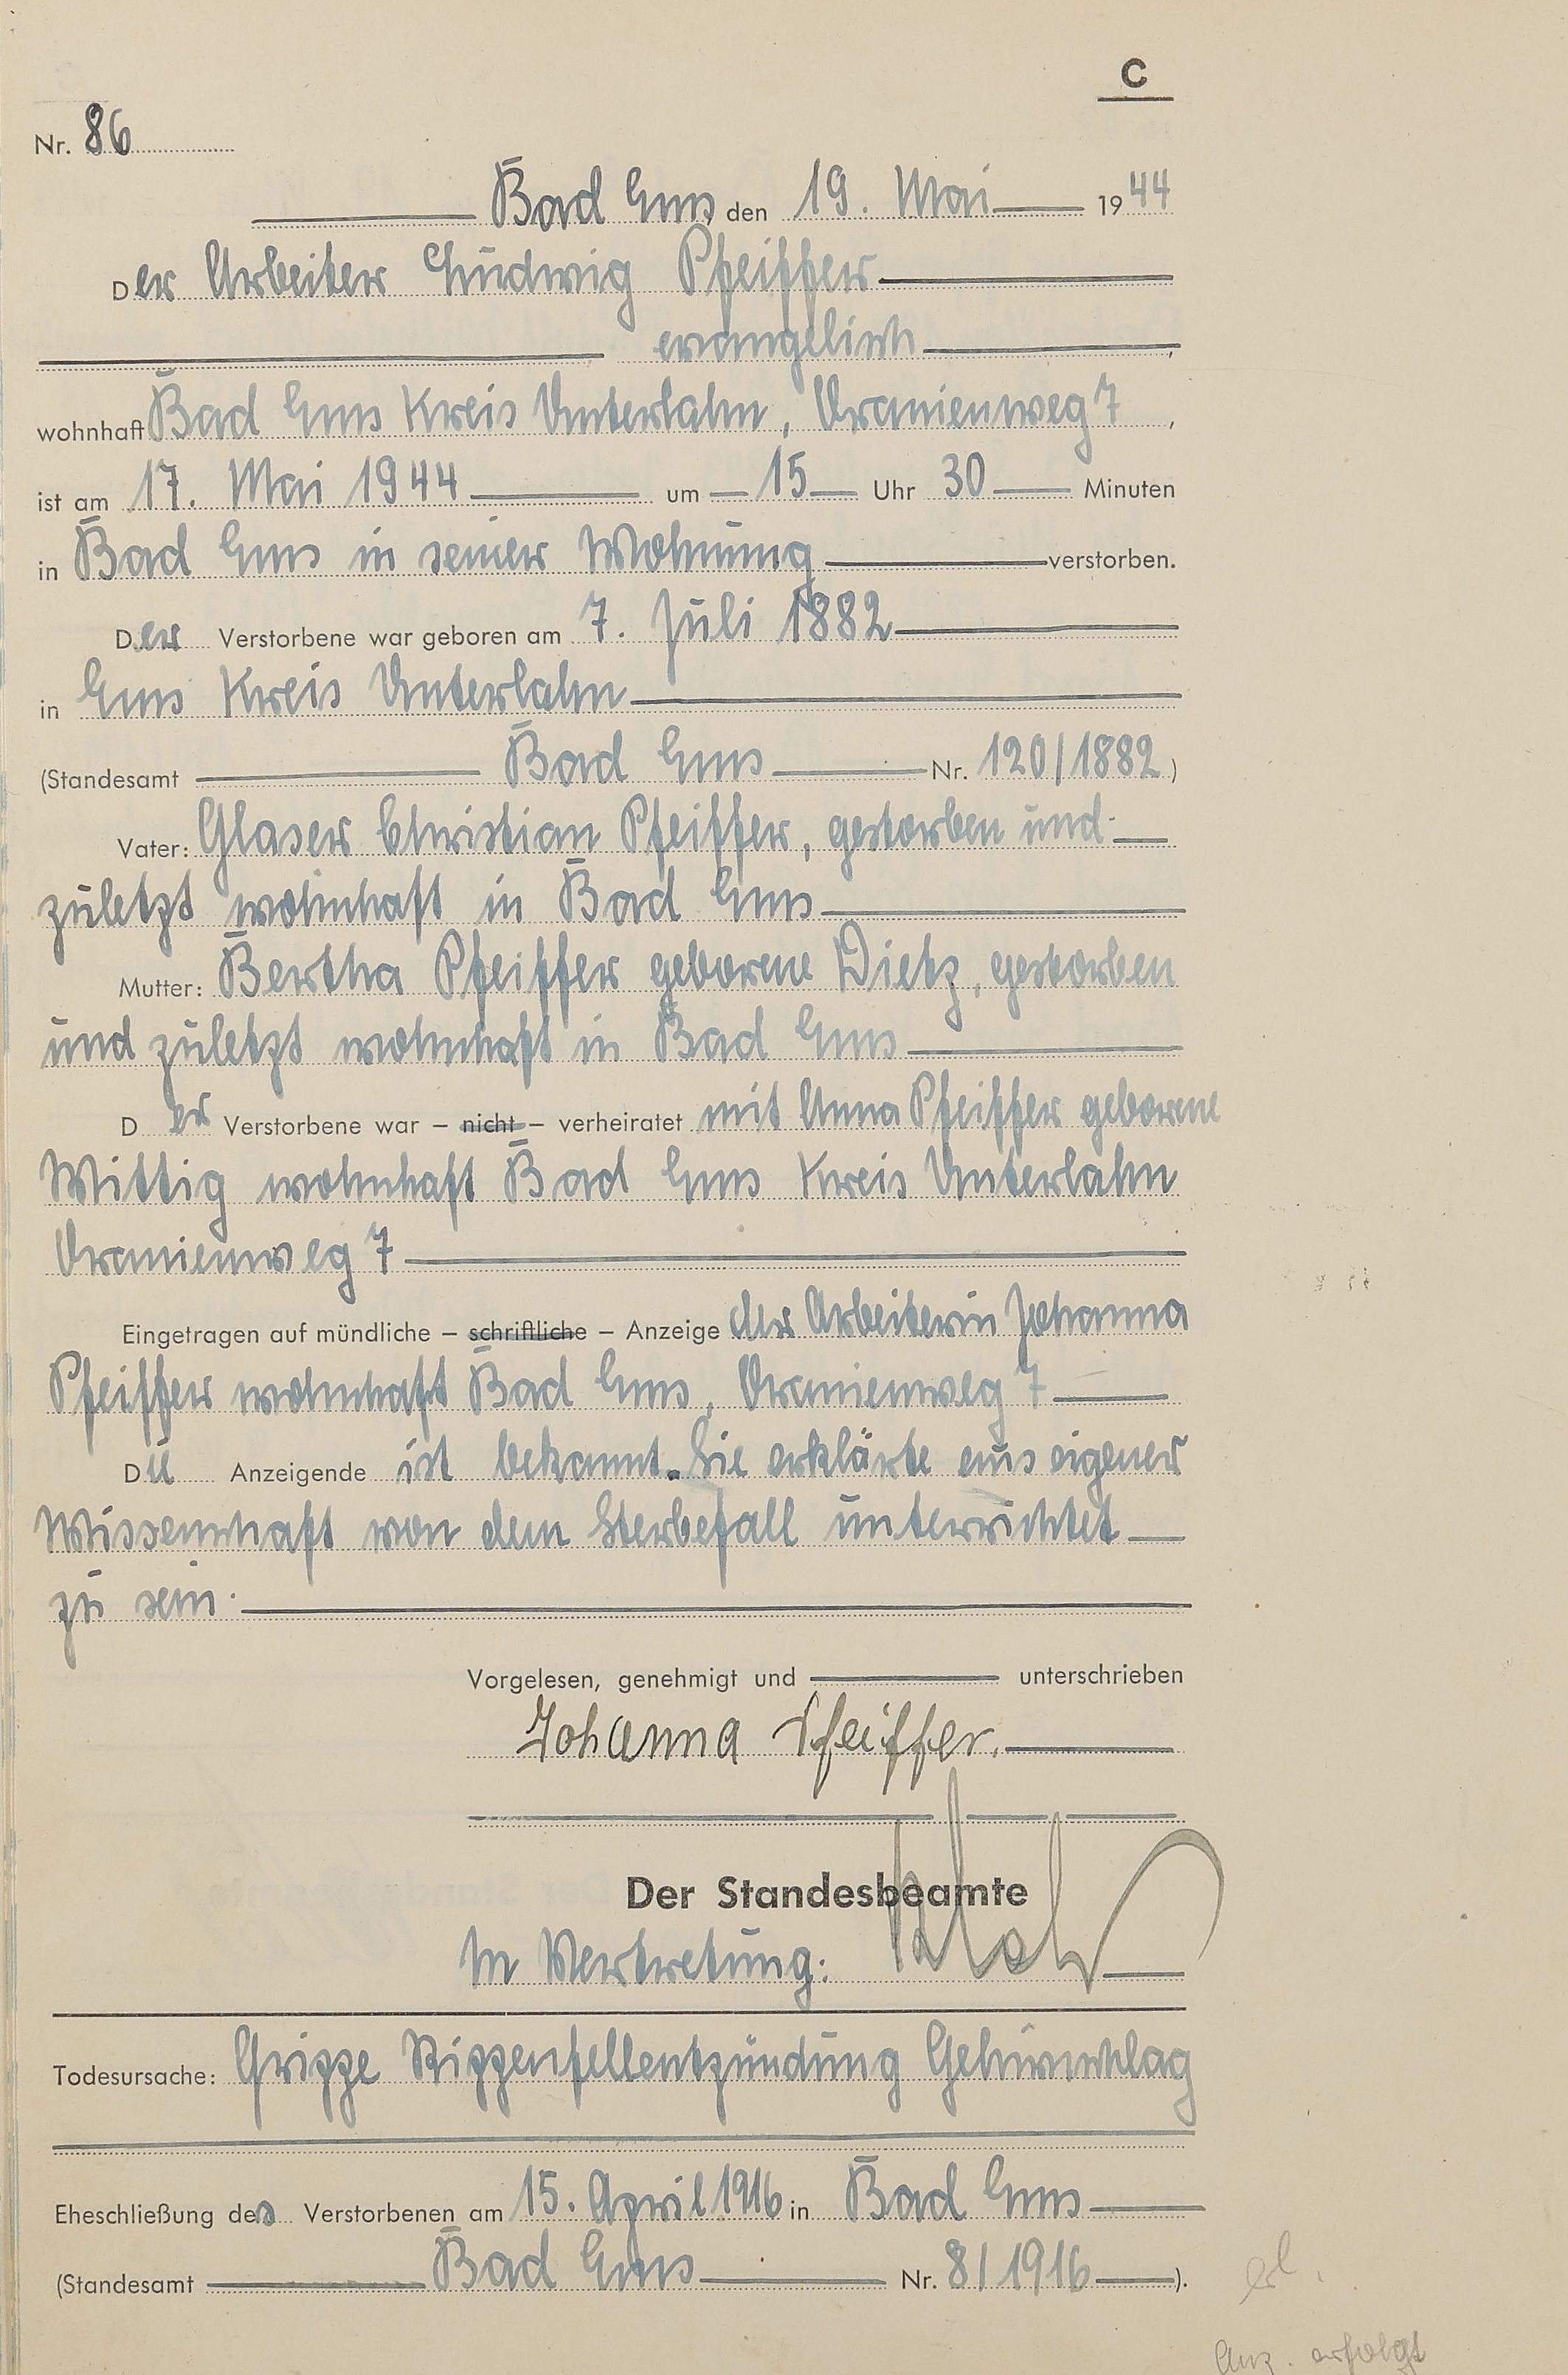 C
Nr. 86
Bad Ems, den 19. Mai 1944
Der Arbeiter Ludwig Pfeiffer
evangelisch,
wohnhaft Bad Ems Kreis Unterlahn, Oranienweg 7,
ist am 17. Mai 1944 um 15 Uhr 30 Minuten
in Bad Ems in seiner Wohnung verstorben.
Der Verstorbene war geboren am 7. Juli 1882
in Ems Kreis Unterlahn
(Standesamt Bad Ems Nr. 120/1882)
Vater: Glaser Christian Pfeiffer, gestorben und
zuletzt wohnhaft in Bad Ems
Mutter: Bertha Pfeiffer geborene Dietz, gestorben
und zuletzt wohnhaft in Bad Ems
Der Verstorbene war – nicht – verheiratet mit Anna Pfeiffer geborene
Wittig wohnhaft Bad Ems Kreis Unterlahn
Oranienweg 7
Eingetragen auf mündliche – schriftliche – Anzeige der Arbeiterin Johanna
Pfeiffer wohnhaft Bad Ems, Oranienweg 7
Die Anzeigende ist bekannt. Sie erklärte aus eigener
Wissenschaft von dem Sterbefall unterrichtet
zu sein.
Vorgelesen, genehmigt und unterschrieben
Johanna Pfeiffer.
Der Standesbeamte
In Vertretung:
Todesursache: Grippe Rippenfellentzündung Gehirnschlag
Eheschließung des Verstorbenen am 15. April 1916 in Bad Ems
(Standesamt Bad Ems Nr. 8/1916).
erl.
Anz. erfolgt